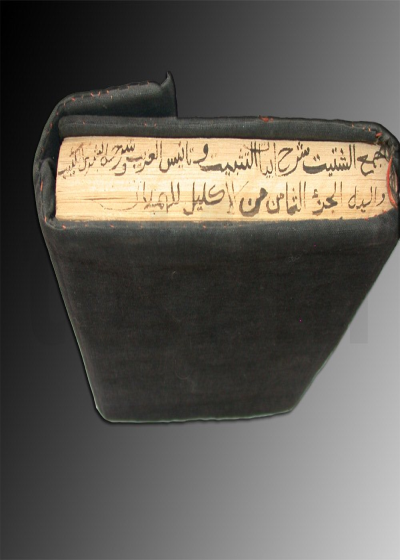 جمع الشتيت شرح ابيات التثبيت وتانيس الغريب وشرحه
الجزء الثامن من الاكليل للهمداني